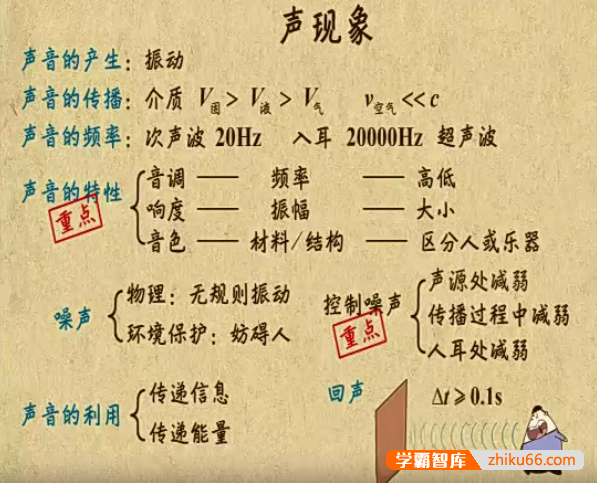 声现象
声音的产生：振动
声音的传播：介质 V固 > V液 > V气 v空气 << c
声音的频率：次声波 20Hz 入耳 20000Hz 超声波
声音的特性
重点
音调 —— 频率 —— 高低
响度 —— 振幅 —— 大小
音色 —— 材料/结构 —— 区分人或乐器
噪声
物理：无规则振动
环境保护：妨碍人
控制噪声
重点
声源处减弱
传播过程中减弱
人耳处减弱
声音的利用
传递信息
传递能量
回声 Δt⩾0.1s
学霸智库
zhiku66.com